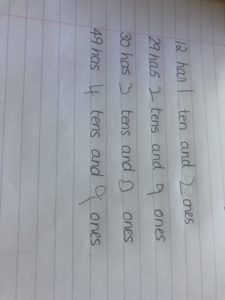 12 has 1 ten and 2 ones
29 has 2 tens and 9 ones
30 has 3 tens and 0 ones
49 has 4 tens and 9 ones.